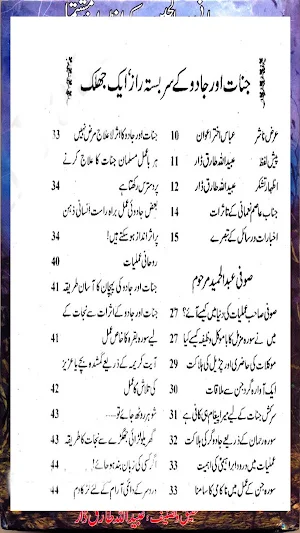 جنات اور جادو کے سربستہ راز، ایک جھلک
عرض ناشر عباس اختر اعوان 10
پیش لفظ عبیداللہ طارق ڈار 11
اظہار تشکر عبیداللہ طارق ڈار 12
جناب عاصم نعمانی کے تاثرات 14
اخبارات و رسائل کے تبصرے 15
صوفی عبدالحمید مرحوم
صوفی صاحب عملیات کی دنیا میں کیسے آئے؟ 27
میں نے سورہ مزمل کا با موکل وظیفہ کیسے کیا 27
موکلات کی حاضری اور چڑیل کی ہلاکت 29
ایک آوارہ گرد جن سے ملاقات 30
سرکش جنات کے لیے میرا پیغام ہی کافی ہے 31
سورہ رحمان کے ذریعے جادوگر کی ہلاکت 32
عملیات میں درود ابراہیمی کی اہمیت 33
سورہ جن کے عمل میں ناکامی کا سامنا 33
جنات اور جادو کا اثر لاعلاج مرض نہیں 33
ہر باعمل مسلمان جنات کا علاج کرنے
پر دسترس رکھتا ہے 34
بعض جادوئی عمل براہ راست انسانی ذہن
پر اثر انداز ہو سکتے ہیں! 34
روحانی عملیات 40
جنات اور جادو کی پہچان کا آسان طریقہ 41
جنات اور جادو کے اثرات سے نجات کے
لیے سورہ بقرہ کا خاص عمل 41
آیت کریمہ کے ذریعے گمشدہ بچے یا عزیز
کی تلاش کا عمل 42
شوہر روٹھ جائے تو...... 43
گھریلو لڑائی جھگڑے سے نجات کا طریقہ 43
اگر کسی کی زبان بند ہو جائے! 44
درد سر کے دائمی آرام کے لئے نر کا دم 44